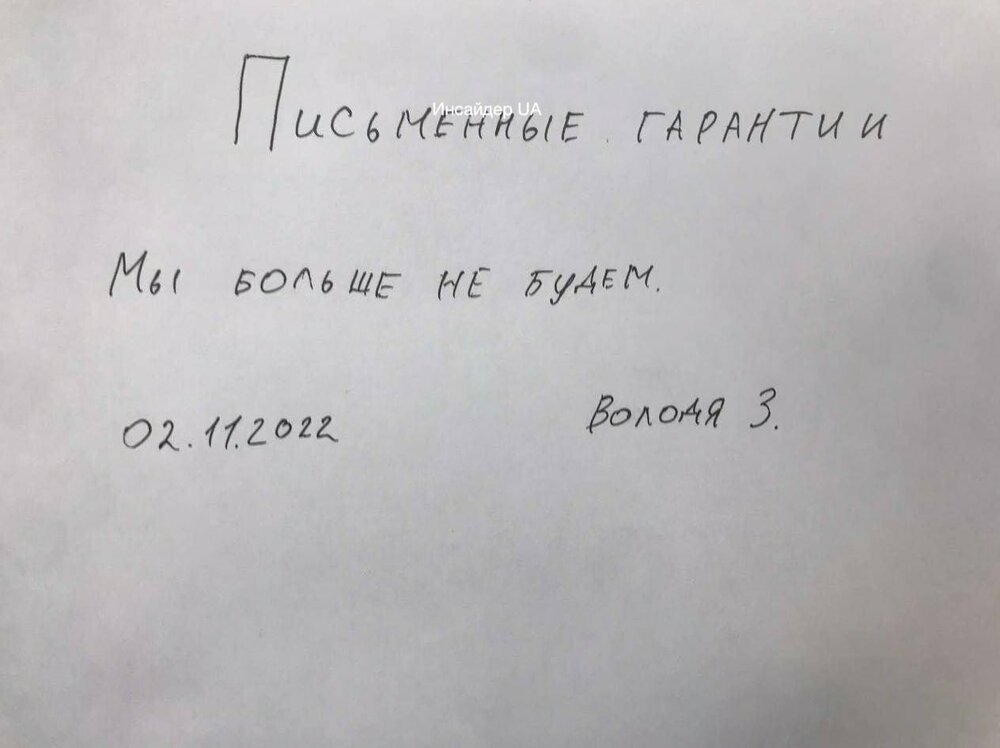 Инсайдер UA
Письменные гарантии
Мы больше не будем.
02.11.2022
Володя З.